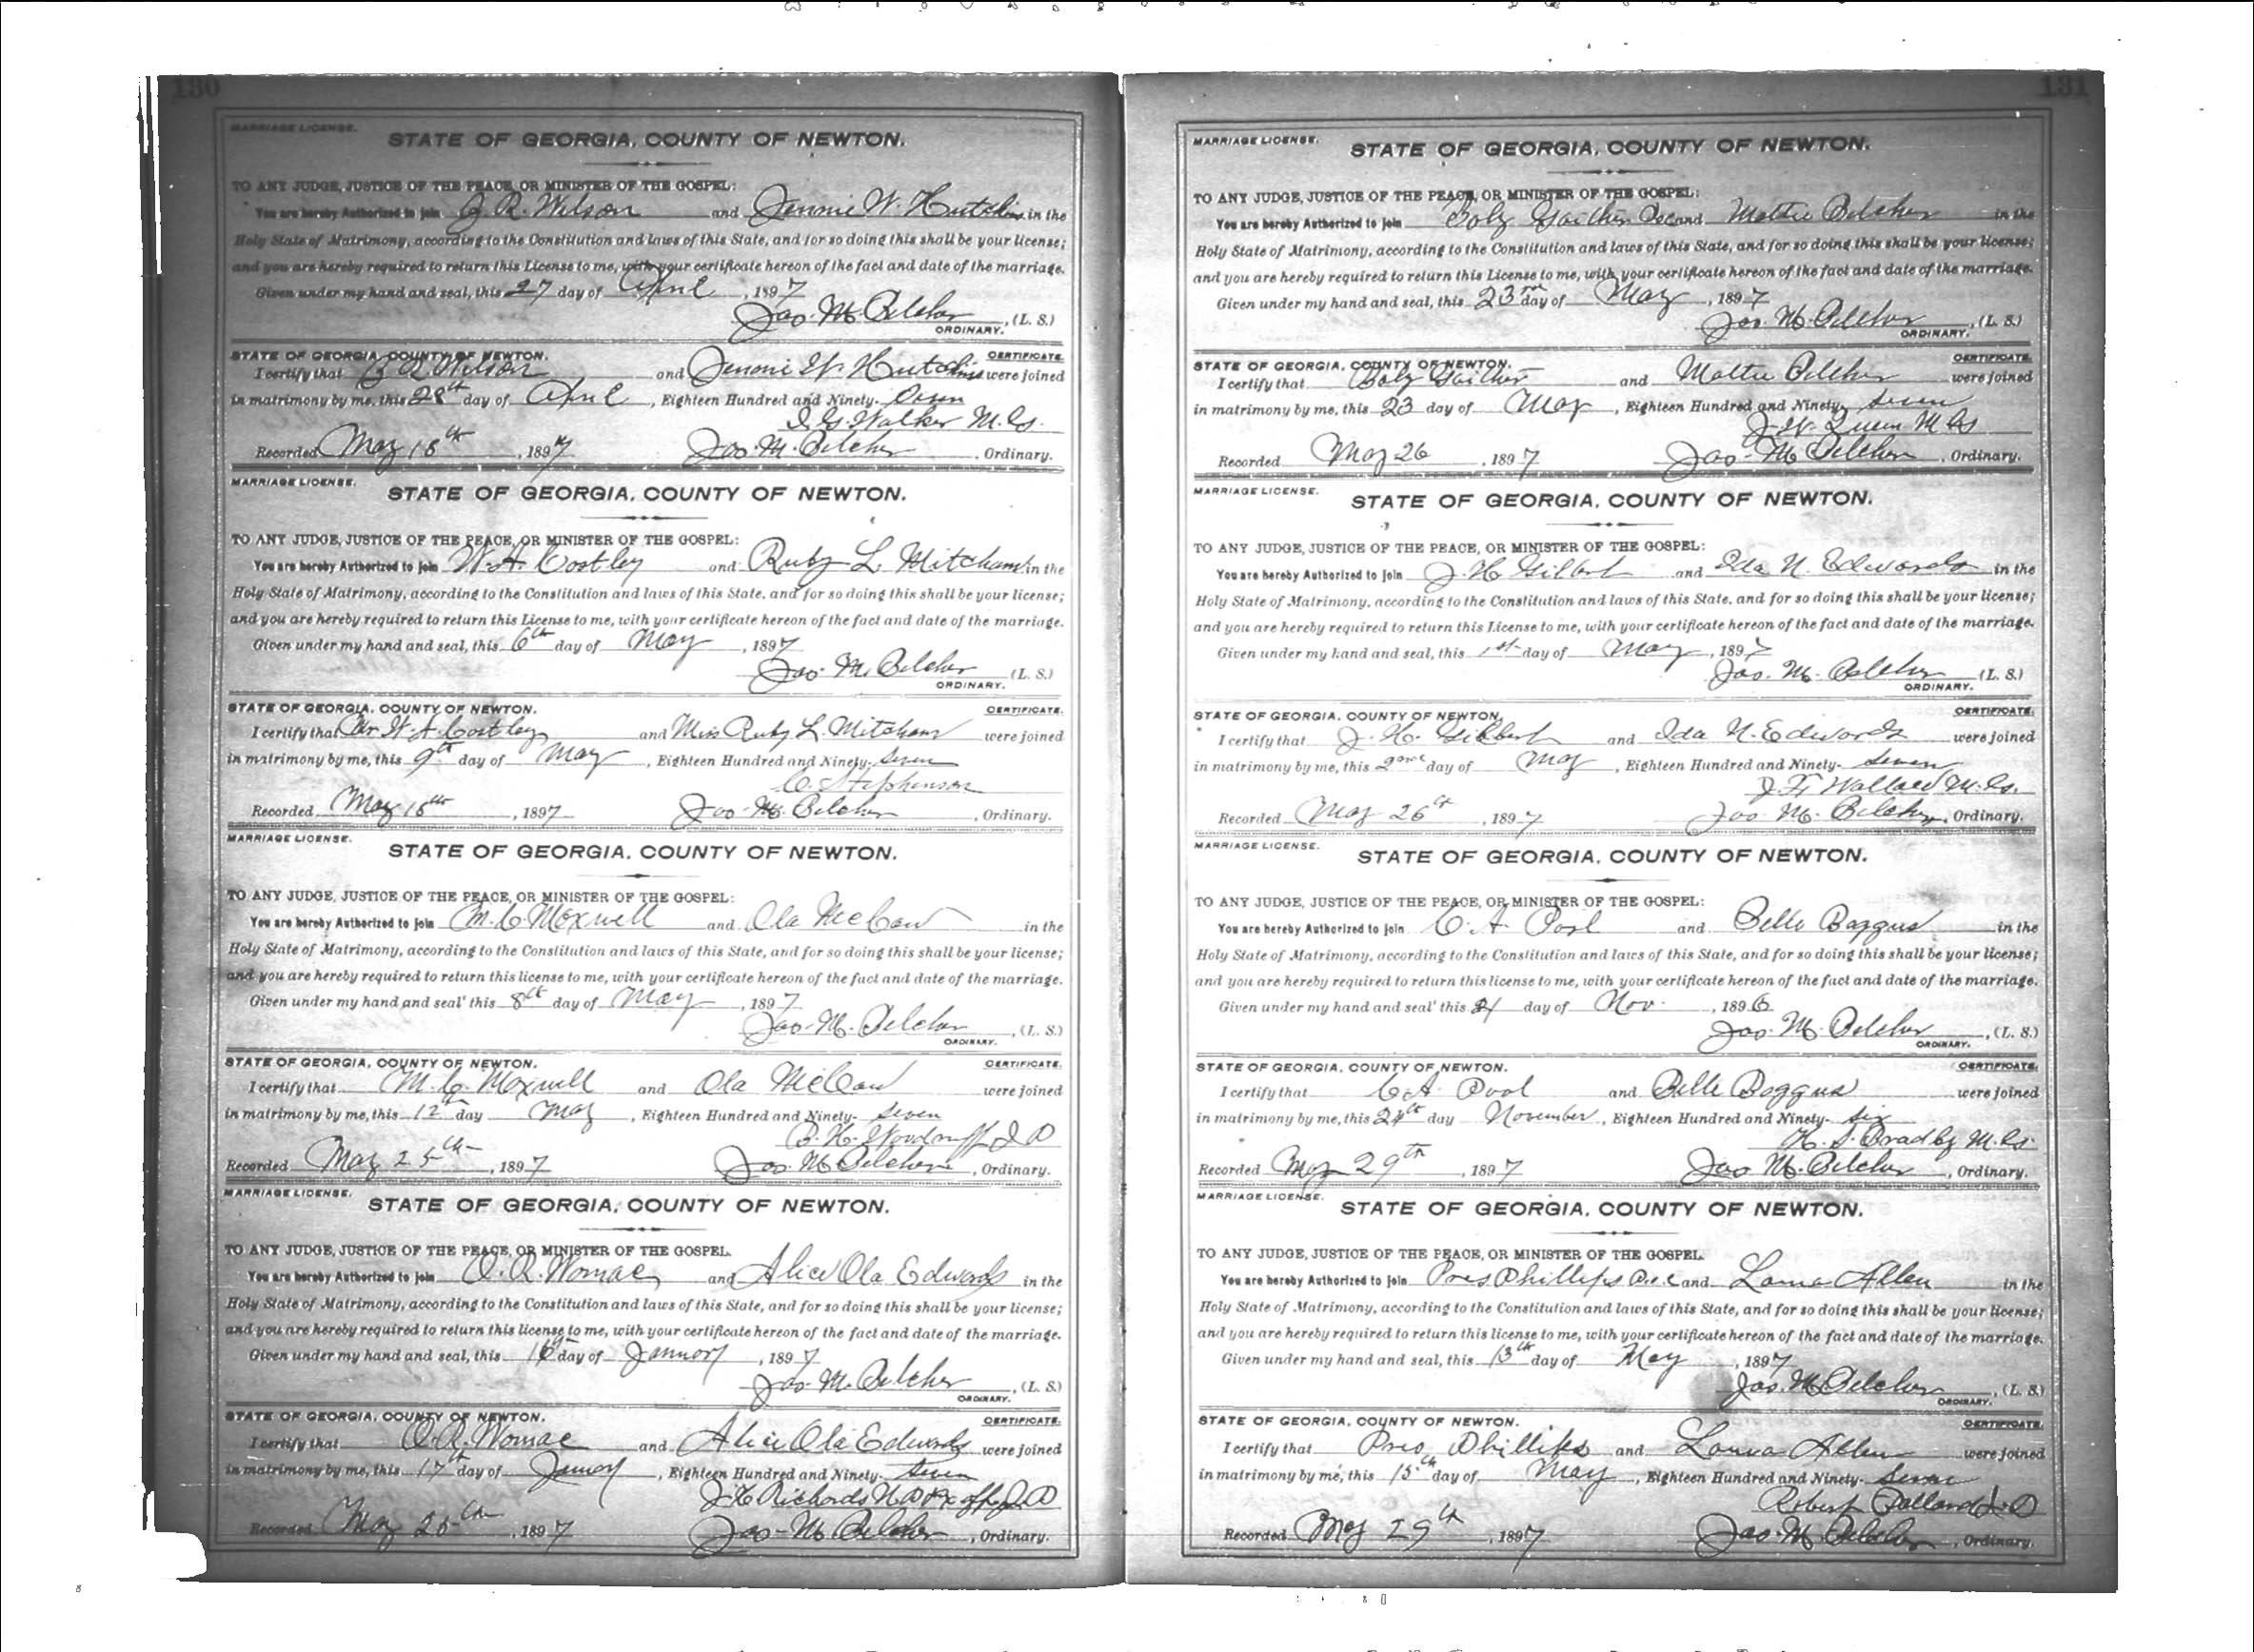 130
MARRIAGE LICENSE.
STATE OF GEORGIA, COUNTY OF NEWTON.
TO ANY JUDGE, JUSTICE OF THE PEACE, OR MINISTER OF THE GOSPEL:
You are hereby Authorized to join R. Wilson and Jennie W. Hutchins in the
Holy State of Matrimony, according to the Constitution and laws of this State, and for so doing this shall be your license;
and you are hereby required to return this License to me, with your certificate hereon of the fact and date of the marriage.
Given under my hand and seal, this 27 day of April, 1897
Jas. M. Belcher, (L. S.)
ORDINARY.
STATE OF GEORGIA, COUNTY OF NEWTON. CERTIFICATE.
I certify that R. Wilson and Jennie W. Hutchins were joined
in matrimony by me, this 28th day of April, Eighteen Hundred and Ninety-Seven
Walker M.G.
Recorded May 18th, 1897 Jas. M. Belcher, Ordinary.
MARRIAGE LICENSE.
STATE OF GEORGIA, COUNTY OF NEWTON.
TO ANY JUDGE, JUSTICE OF THE PEACE, OR MINISTER OF THE GOSPEL:
You are hereby Authorized to join W. A. Costley and Ruby L. Mitcham in the
Holy State of Matrimony, according to the Constitution and laws of this State, and for so doing this shall be your license;
and you are hereby required to return this License to me, with your certificate hereon of the fact and date of the marriage.
Given under my hand and seal, this 6th day of May, 1897
Jas. M. Belcher (L. S.)
ORDINARY.
STATE OF GEORGIA, COUNTY OF NEWTON. CERTIFICATE.
I certify that Mr W. A. Costley and Miss Ruby L. Mitcham were joined
in matrimony by me, this 9th day of May, Eighteen Hundred and Ninety-Seven
Stephenson
Recorded May 18th, 1897 Jas. M. Belcher, Ordinary.
MARRIAGE LICENSE.
STATE OF GEORGIA, COUNTY OF NEWTON.
TO ANY JUDGE, JUSTICE OF THE PEACE, OR MINISTER OF THE GOSPEL:
You are hereby Authorized to join M. C. Maxwell and Ola McCaw in the
Holy State of Matrimony, according to the Constitution and laws of this State, and for so doing this shall be your license;
and you are hereby required to return this license to me, with your certificate hereon of the fact and date of the marriage.
Given under my hand and seal this 8th day of May, 1897
Jas. M. Belcher, (L. S.)
ORDINARY.
STATE OF GEORGIA, COUNTY OF NEWTON. CERTIFICATE.
I certify that M. C. Maxwell and Ola McCaw were joined
in matrimony by me, this 12th day May, Eighteen Hundred and Ninety-Seven
Woodruff J P
Recorded May 25th, 1897 Jas. M. Belcher, Ordinary.
MARRIAGE LICENSE.
STATE OF GEORGIA, COUNTY OF NEWTON.
TO ANY JUDGE, JUSTICE OF THE PEACE, OR MINISTER OF THE GOSPEL.
You are hereby Authorized to join O. R. Womac and Alice Ola Edwards in the
Holy State of Matrimony, according to the Constitution and laws of this State, and for so doing this shall be your license;
and you are hereby required to return this license to me, with your certificate hereon of the fact and date of the marriage.
Given under my hand and seal, this 16 day of January, 1897
Jas. M. Belcher, (L. S.)
ORDINARY.
STATE OF GEORGIA, COUNTY OF NEWTON. CERTIFICATE.
I certify that O. R. Womac and Alice Ola Edwards were joined
in matrimony by me, this 17th day of January, Eighteen Hundred and Ninety-Seven
Richards N P & Ex off J P
Recorded May 26th, 1897 Jas. M. Belcher, Ordinary.
131
MARRIAGE LICENSE.
STATE OF GEORGIA, COUNTY OF NEWTON.
TO ANY JUDGE, JUSTICE OF THE PEACE, OR MINISTER OF THE GOSPEL:
You are hereby Authorized to join Gaither and Mattie Belcher in the
Holy State of Matrimony, according to the Constitution and laws of this State, and for so doing this shall be your license;
and you are hereby required to return this License to me, with your certificate hereon of the fact and date of the marriage.
Given under my hand and seal, this 23rd day of May, 1897
Jas. M. Belcher, (L. S.)
ORDINARY.
STATE OF GEORGIA, COUNTY OF NEWTON. CERTIFICATE.
I certify that Gaither and Mattie Belcher were joined
in matrimony by me, this 23 day of May, Eighteen Hundred and Ninety-Seven
J. W. M G
Recorded May 26, 1897 Jas. M. Belcher, Ordinary.
MARRIAGE LICENSE.
STATE OF GEORGIA, COUNTY OF NEWTON.
TO ANY JUDGE, JUSTICE OF THE PEACE, OR MINISTER OF THE GOSPEL:
You are hereby Authorized to join J. H. Gilbert and Ida N. Edwards in the
Holy State of Matrimony, according to the Constitution and laws of this State, and for so doing this shall be your license;
and you are hereby required to return this License to me, with your certificate hereon of the fact and date of the marriage.
Given under my hand and seal, this 1st day of May, 1897
Jas. M. Belcher (L. S.)
ORDINARY.
STATE OF GEORGIA, COUNTY OF NEWTON. CERTIFICATE.
I certify that J. H. Gilbert and Ida N. Edwards were joined
in matrimony by me, this 2nd day of May, Eighteen Hundred and Ninety-Seven
Wallace M.G.
Recorded May 26th, 1897 Jas. M. Belcher, Ordinary.
MARRIAGE LICENSE.
STATE OF GEORGIA, COUNTY OF NEWTON.
TO ANY JUDGE, JUSTICE OF THE PEACE, OR MINISTER OF THE GOSPEL:
You are hereby Authorized to join C. A. Pool and Belle Boggus in the
Holy State of Matrimony, according to the Constitution and laws of this State, and for so doing this shall be your license;
and you are hereby required to return this license to me, with your certificate hereon of the fact and date of the marriage.
Given under my hand and seal this day of Nov., 1896
Jas. M. Belcher, (L. S.)
ORDINARY.
STATE OF GEORGIA, COUNTY OF NEWTON. CERTIFICATE.
I certify that C. A. Pool and Belle Boggus were joined
in matrimony by me, this 24th day November, Eighteen Hundred and Ninety-Six
H. S. Bradley M.G.
Recorded May 29th, 1897 Jas M. Belcher, Ordinary.
MARRIAGE LICENSE.
STATE OF GEORGIA, COUNTY OF NEWTON.
TO ANY JUDGE, JUSTICE OF THE PEACE, OR MINISTER OF THE GOSPEL.
You are hereby Authorized to join Pres Phillips and Laura Allen in the
Holy State of Matrimony, according to the Constitution and laws of this State, and for so doing this shall be your license;
and you are hereby required to return this license to me, with your certificate hereon of the fact and date of the marriage.
Given under my hand and seal, this 13th day of May, 1897
Jas. M. Belcher, (L. S.)
ORDINARY.
STATE OF GEORGIA, COUNTY OF NEWTON. CERTIFICATE.
I certify that Pres Phillips and Laura Allen were joined
in matrimony by me, this 15th day of May, Eighteen Hundred and Ninety-Seven
Robert J P
Recorded May 29th, 1897 Jas. M. Belcher, Ordinary.